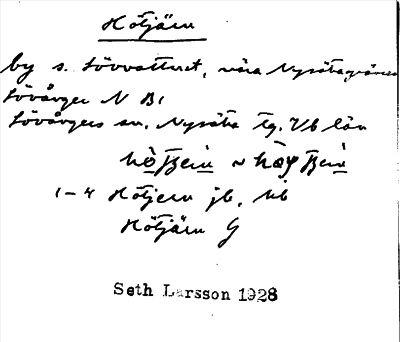 Hötjärn
by s. Lövvattnet, nära Nysätragränsen
Lövånger N B1
Lövångers sn. Nysätra tg. Vb län
1-4 Hötjern jb, kb
Hötjärn G
Seth Larsson 1928